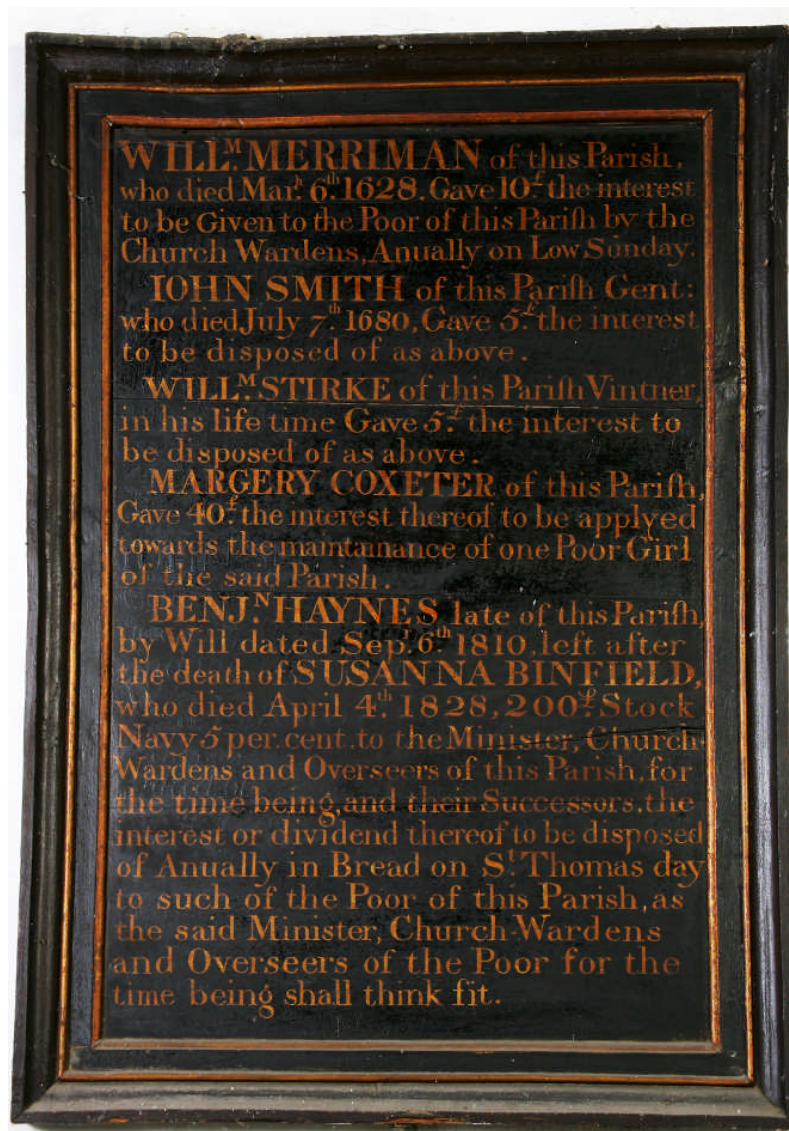 WILL.ᴹ MERRIMAN of this Parish,
who died Mar.ʰ 6.ᵗʰ 1628. Gave 10.£ the interest
to be Given to the Poor of this Pariſh by the
Church Wardens, Anually on Low Sunday.
IOHN SMITH of this Pariſh Gent:
who died July 7.ᵗʰ 1680, Gave 5.£ the interest
to be disposed of as above.
WILL.ᴹ STIRKE of this Pariſh Vintner,
in his life time Gave 5.£ the interest to
be disposed of as above.
MARGERY COXETER of this Pariſh,
Gave 40.£ the interest thereof to be applyed
towards the maintainance of one Poor Girl
of the said Parish.
BENJ.ᴺ HAYNES late of this Pariſh,
by Will dated Sep. 6ᵗʰ 1810, left after
the death of SUSANNA BINFIELD,
who died April 4.ᵗʰ 1828, 200.£ Stock
Navy 5 per. cent. to the Minister, Church-
Wardens and Overseers of this Parish, for
the time being, and their Successors, the
interest or dividend thereof to be disposed
of Anually in Bread on S.ᵗ Thomas day
to such of the Poor of this Parish, as
the said Minister, Church-Wardens
and Overseers of the Poor for the
time being shall think fit.